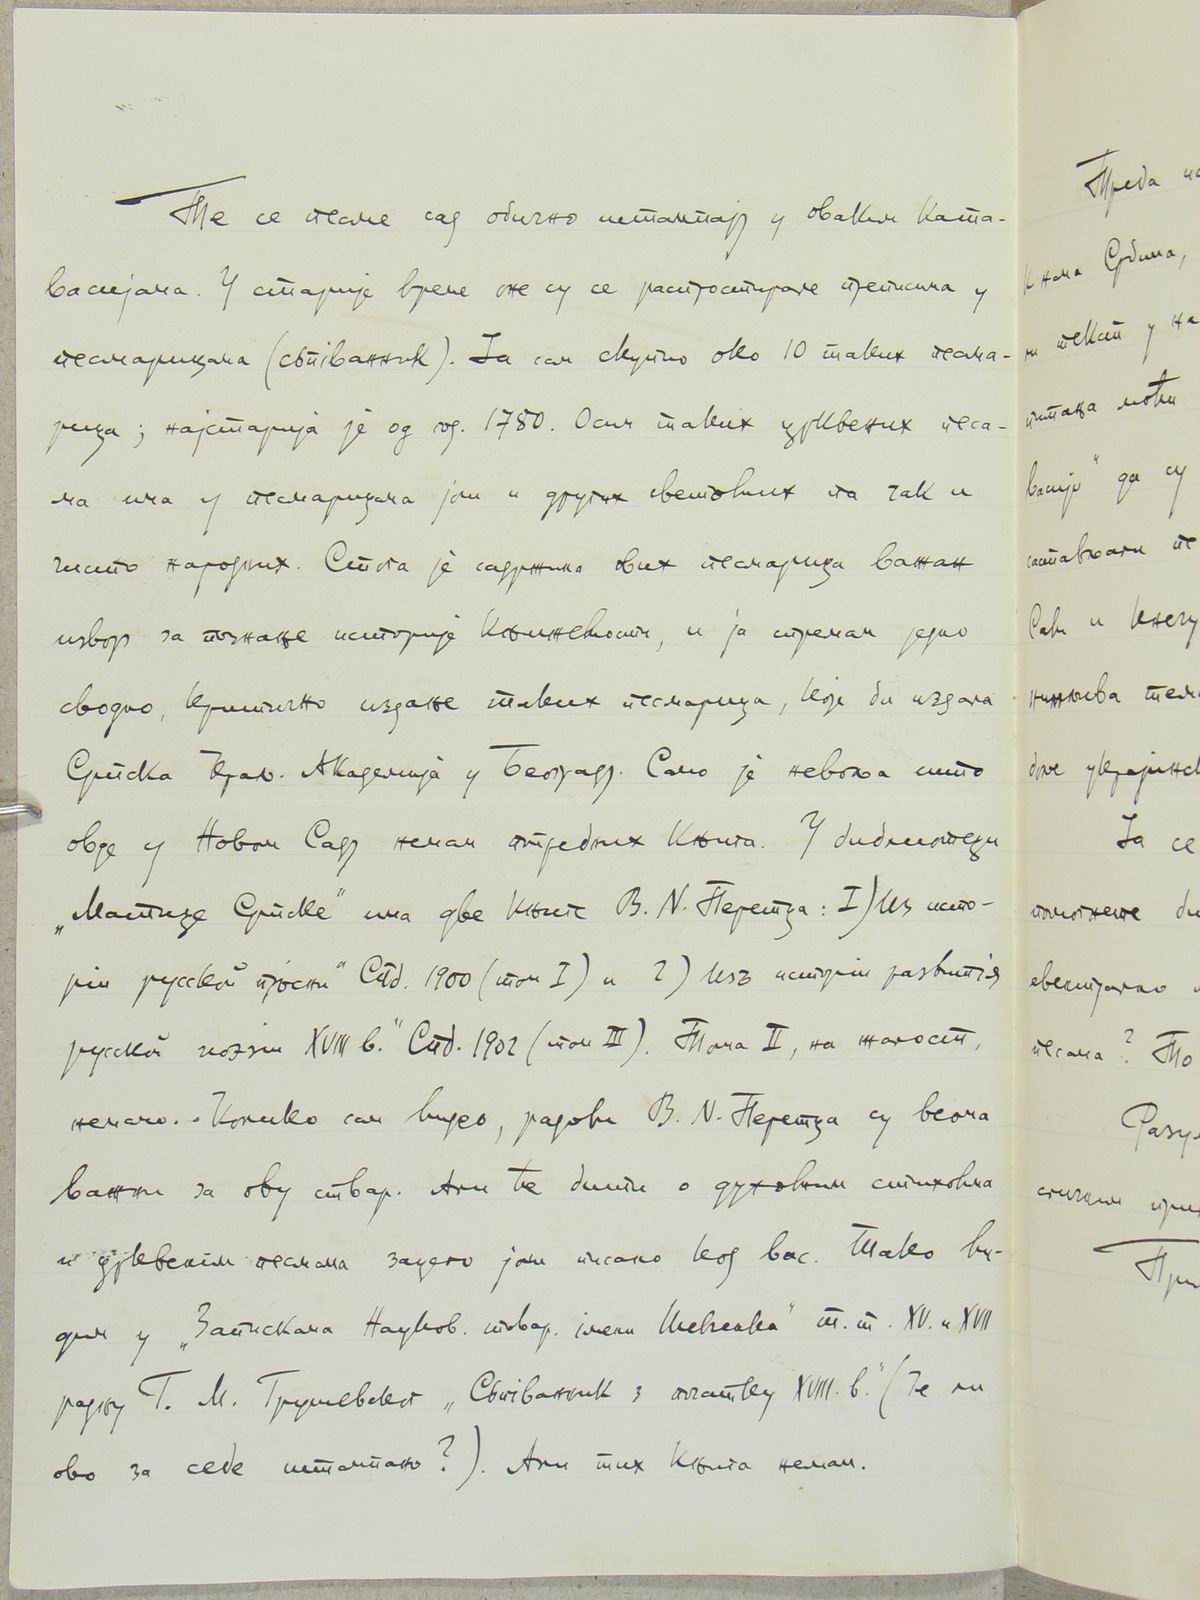 Те се песме сад обично штампају у оваким Ката-
васијама. У старије време оне су се распростирале преписима у
песмарицама (съпіванник). Ја сам скупио око 10 таких песма-
рица; најстарија је од год. 1780. Осим таких црквених песа-
ма има у песмарицама још и других световних па чак и
чисто народних. Стога је садржина ових песмарица важан
извор за познање историје књижевности, и ја спремам једно
сводно, критично издање таких песмарица, које би издала
Српска Краљ. Академија у Београду. Само је невоља што
овде у Новом Саду немам потребних књига. У библиотеци
„Матице Српске" има две књиге В. N. Перетца: I) Из исто-
ріи русской пѣсни" Спб. 1900 (том I) и 2) Изъ исторіи развитія
русской поэзіи XVIII в." Спб. 1902 (том III). Тома II, на жалост,
немамо. Колико сам видео, радови В. N. Перетца су веома
важни за ову ствар. Али ће бити о духовним стиховима
и црквеним песмама зацело још писано код вас. Тако ви-
дим у „Запискама Науков. товар. імени Шевченка" т. т. XV. и XVII
радњу Г. М. Грушевског „Съпіванник з початку XVIII. в." (Је ли
ово за себе штампано?). Али тих књига немам.
Треба
Срба,
текст у
питања моћи
васију" да су
састављали пе
Сави и
украјинск
Ја се
помогнете
евентуално
песама? То
При